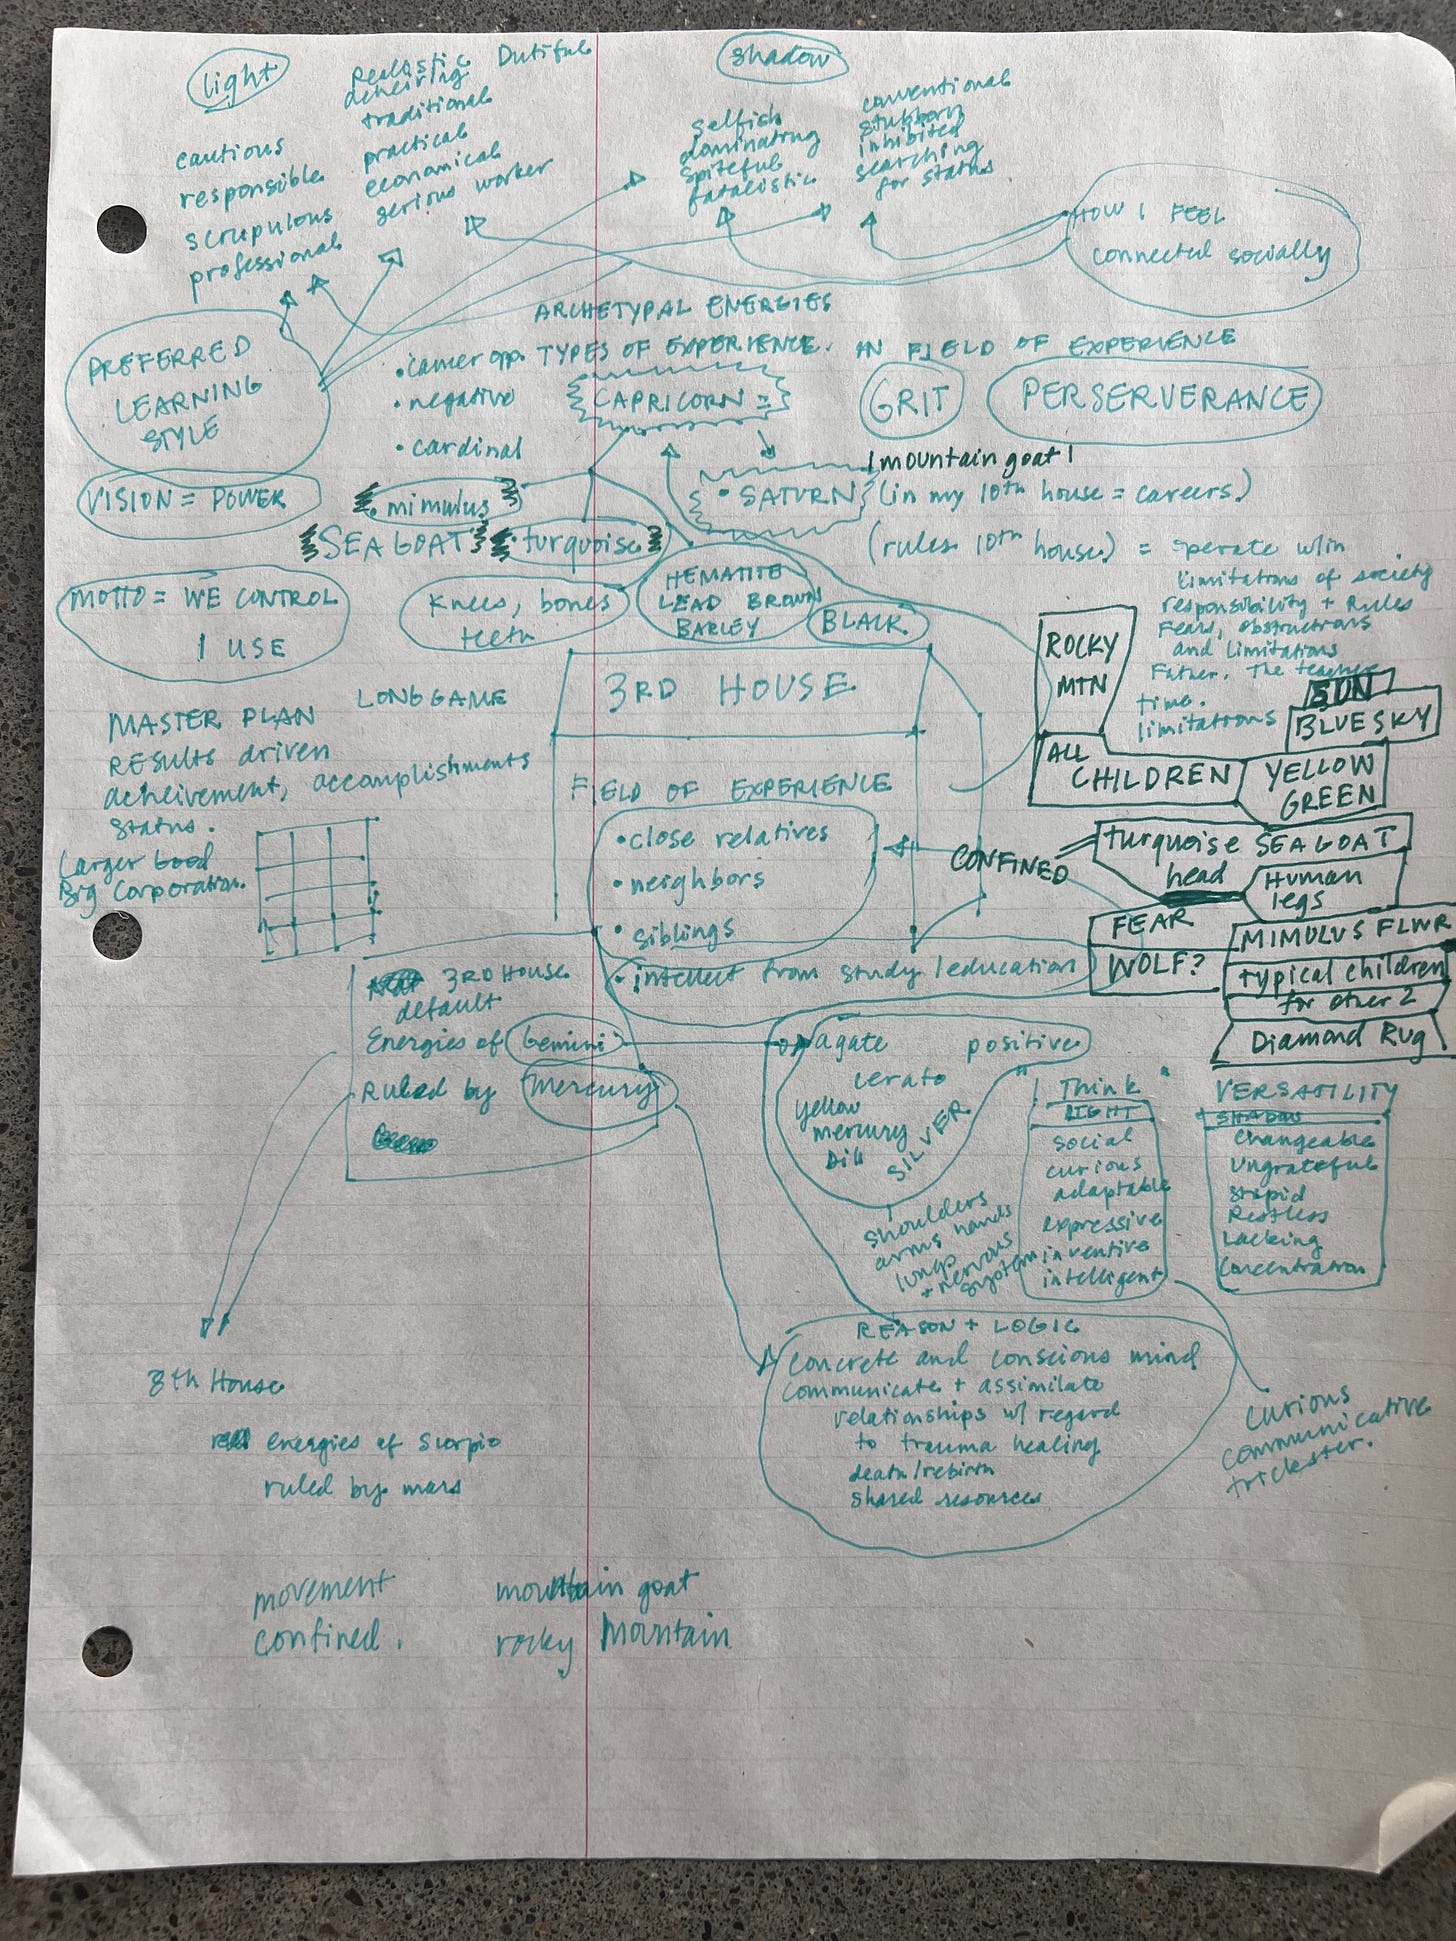 light
cautious
responsible
scrupulous
professional
Realistic
acheiving
traditional
practical
economical
serious worker
Dutiful
shadow
selfish
dominating
spiteful
fatalistic
conventional
stubborn
inhibited
searching
for status
HOW I FEEL
connected socially
ARCHETYPAL ENERGIES
TYPES OF EXPERIENCE. IN FIELD OF EXPERIENCE
PREFERRED
LEARNING
STYLE
• career opp.
• negative
• cardinal
CAPRICORN =
GRIT
PERSERVERANCE
VISION = POWER
• mimulus
SEA GOAT
• turquoise
mountain goat
• SATURN
(in my 10th house = careers.)
(rules 10th house) = operate w/in
limitations of society
responsibility + Rules
Fears, obstructions
and limitations
Father, The teacher
time.
limitations
MOTTO = WE CONTROL
I USE
Knees, bones
teeth
HEMATITE
LEAD BROWN
BARLEY
BLACK
3RD HOUSE
ROCKY
MTN
SUN
BLUE SKY
ALL
CHILDREN
YELLOW
GREEN
LONG GAME
MASTER PLAN
RESults driven
acheivement, accomplishments
status.
Larger Good
Big Corporation.
FIELD OF EXPERIENCE
• close relatives
• neighbors
• siblings
• intellect from study / education
CONFINED
turquoise SEA GOAT
head
HUMAN
legs
FEAR
WOLF?
MIMULUS FLWR
typical children
for other 2
Diamond Rug
3RD HOUSE
default
Energies of Gemini
Ruled by Mercury
agate positive
cerato
yellow
mercury
Dill
SILVER
"I Think"
LIGHT
social
curious
adaptable
expressive
inventive
intelligent
VERSATILITY
SHADOW
Changeable
Ungrateful
Stupid
Restless
Lacking
Concentration
shoulders
arms hands
lungs
+ nervous
system
REASON + LOGIC
Concrete and conscious mind
communicate + assimilate
relationships w/ regard
to trauma healing
death/rebirth
shared resources
curious
communicative
trickster.
8th House
energies of Scorpio
ruled by mars
movement
confined.
mountain goat
rocky mountain